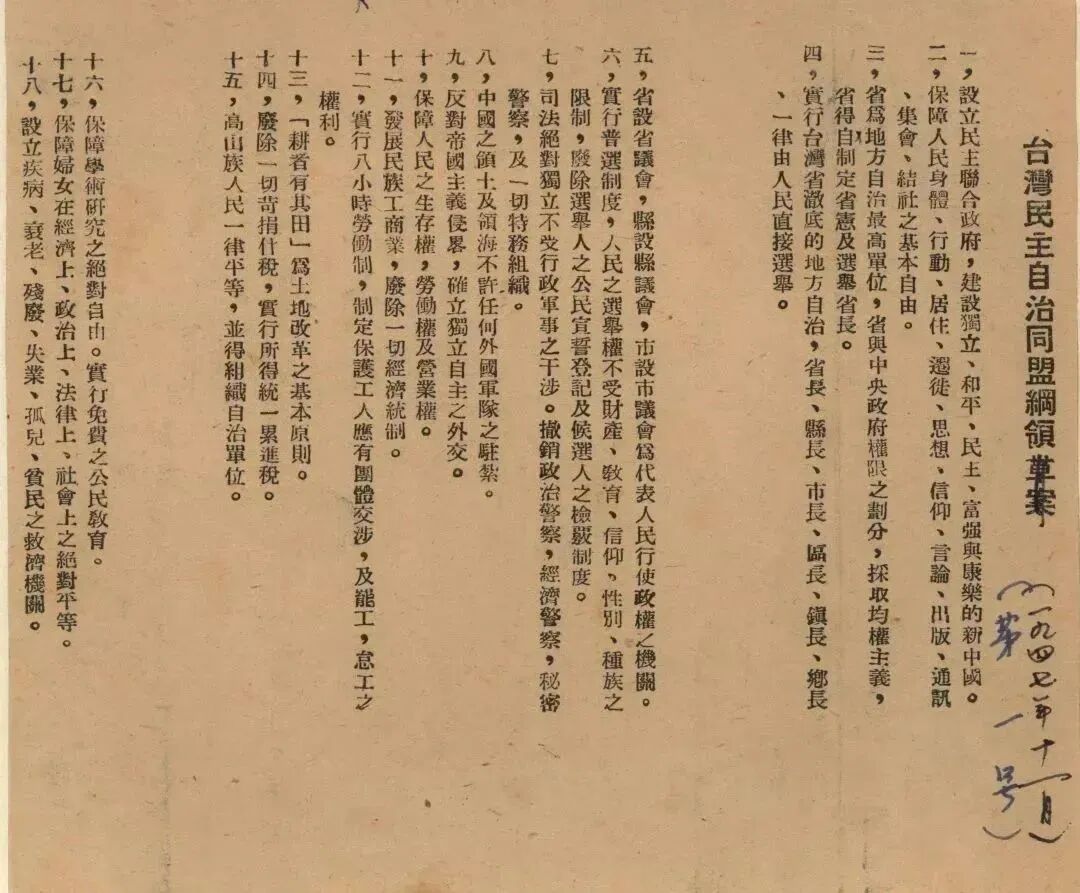 台灣民主自治同盟綱領草案
(一九四七年十一月)
(第一号)
一，設立民主聯合政府，建設獨立、和平、民主、富强與康樂的新中國。
二，保障人民身體、行動、居住、遷徙、思想、信仰、言論、出版、通訊
、集會、結社之基本自由。
三，省爲地方自治最高單位，省與中央政府權限之劃分，採取均權主義，
省得自制定省憲及選舉省長。
四，實行台灣省澈底的地方自治，省長、縣長、市長、區長、鎭長、鄉長
、一律由人民直接選舉。
五，省設省議會，縣設縣議會，市設市議會爲代表人民行使政權之機關。
六，實行普選制度，人民之選舉權不受財產、敎育、信仰、性別、種族之
限制，廢除選舉人之公民宣誓登記及候選人之檢覈制度。
七，司法絕對獨立不受行政軍事之干涉。撤銷政治警察，經濟警察，秘密
警察，及一切特務組織。
八，中國之領土及領海不許任何外國軍隊之駐紮。
九，反對帝國主義侵畧，確立獨立自主之外交。
十，保障人民之生存權，勞働權及營業權。
十一，發展民族工商業，廢除一切經濟統制。
十二，實行八小時勞働制，制定保護工人應有團體交涉，及罷工，怠工之
權利。
十三，「耕者有其田」爲土地改革之基本原則。
十四，廢除一切苛捐什稅，實行所得統一累進稅。
十五，高山族人民一律平等，並得組織自治單位。
十六，保障學術硏究之絕對自由。實行免費之公民敎育。
十七，保障婦女在經濟上、政治上、法律上、社會上之絕對平等。
十八，設立疾病、衰老、殘廢、失業、孤兒、貧民之救濟機關。